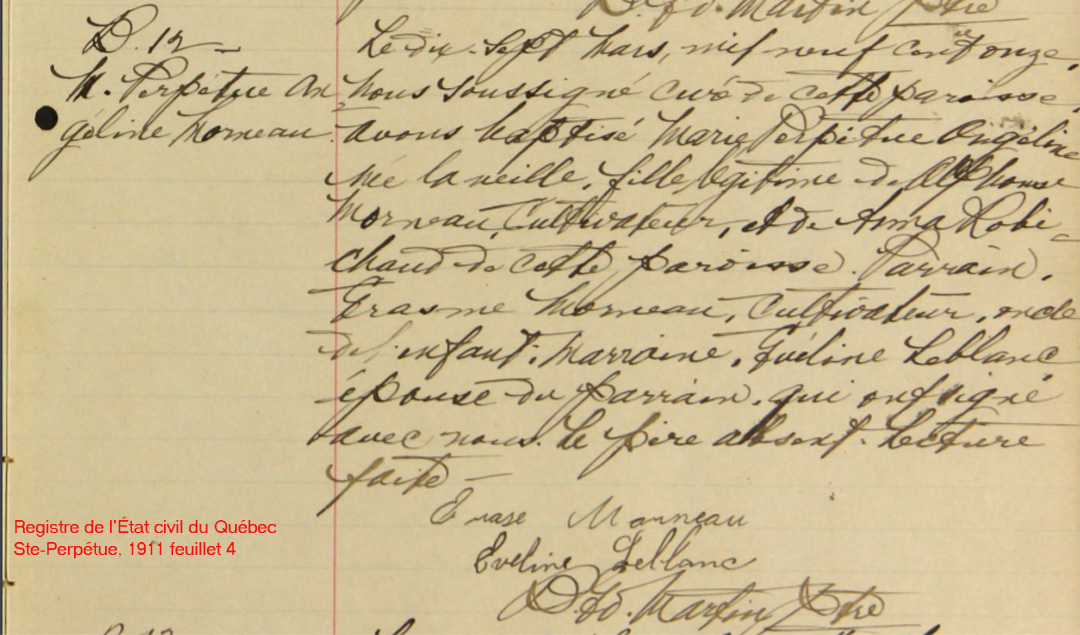 D. Ed. Martin Ptre
B. 12
M. Perpétue An
géline Morneau
Le dix-sept Mars, mil neuf cent onze,
Nous soussigné curé de cette paroisse,
avons baptisé Marie Perpétue Angéline
née la veille, fille légitime de Alphonse
Morneau, Cultivateur, et de Anna Robi-
chaud de cette paroisse. Parrain,
Erasme Morneau, Cultivateur, oncle
de l'enfant. Marraine, Eveline Leblanc
épouse du parrain, qui ont signé
avec nous. Le père absent. Lecture
faite
Erase Morneau
Eveline Leblanc
D. Ed. Martin Ptre
Registre de l'État civil du Québec
Ste-Perpétue, 1911 feuillet 4